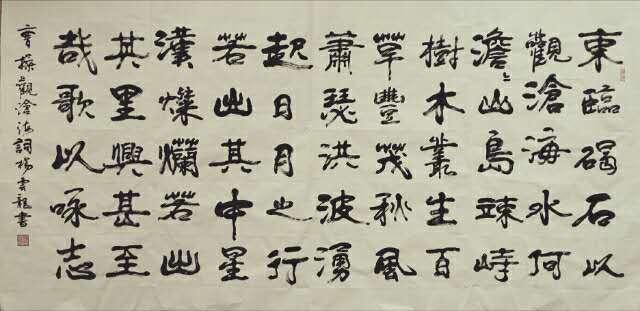 東臨碣石以
觀滄海水何
澹〻山島竦峙
樹木叢生百
草豐茂秋風
蕭瑟洪波湧
起日月之行
若出其中星
漢燦爛若出
其里興甚至
哉歌以咏志
曹操觀滄海詞楊雲龍書